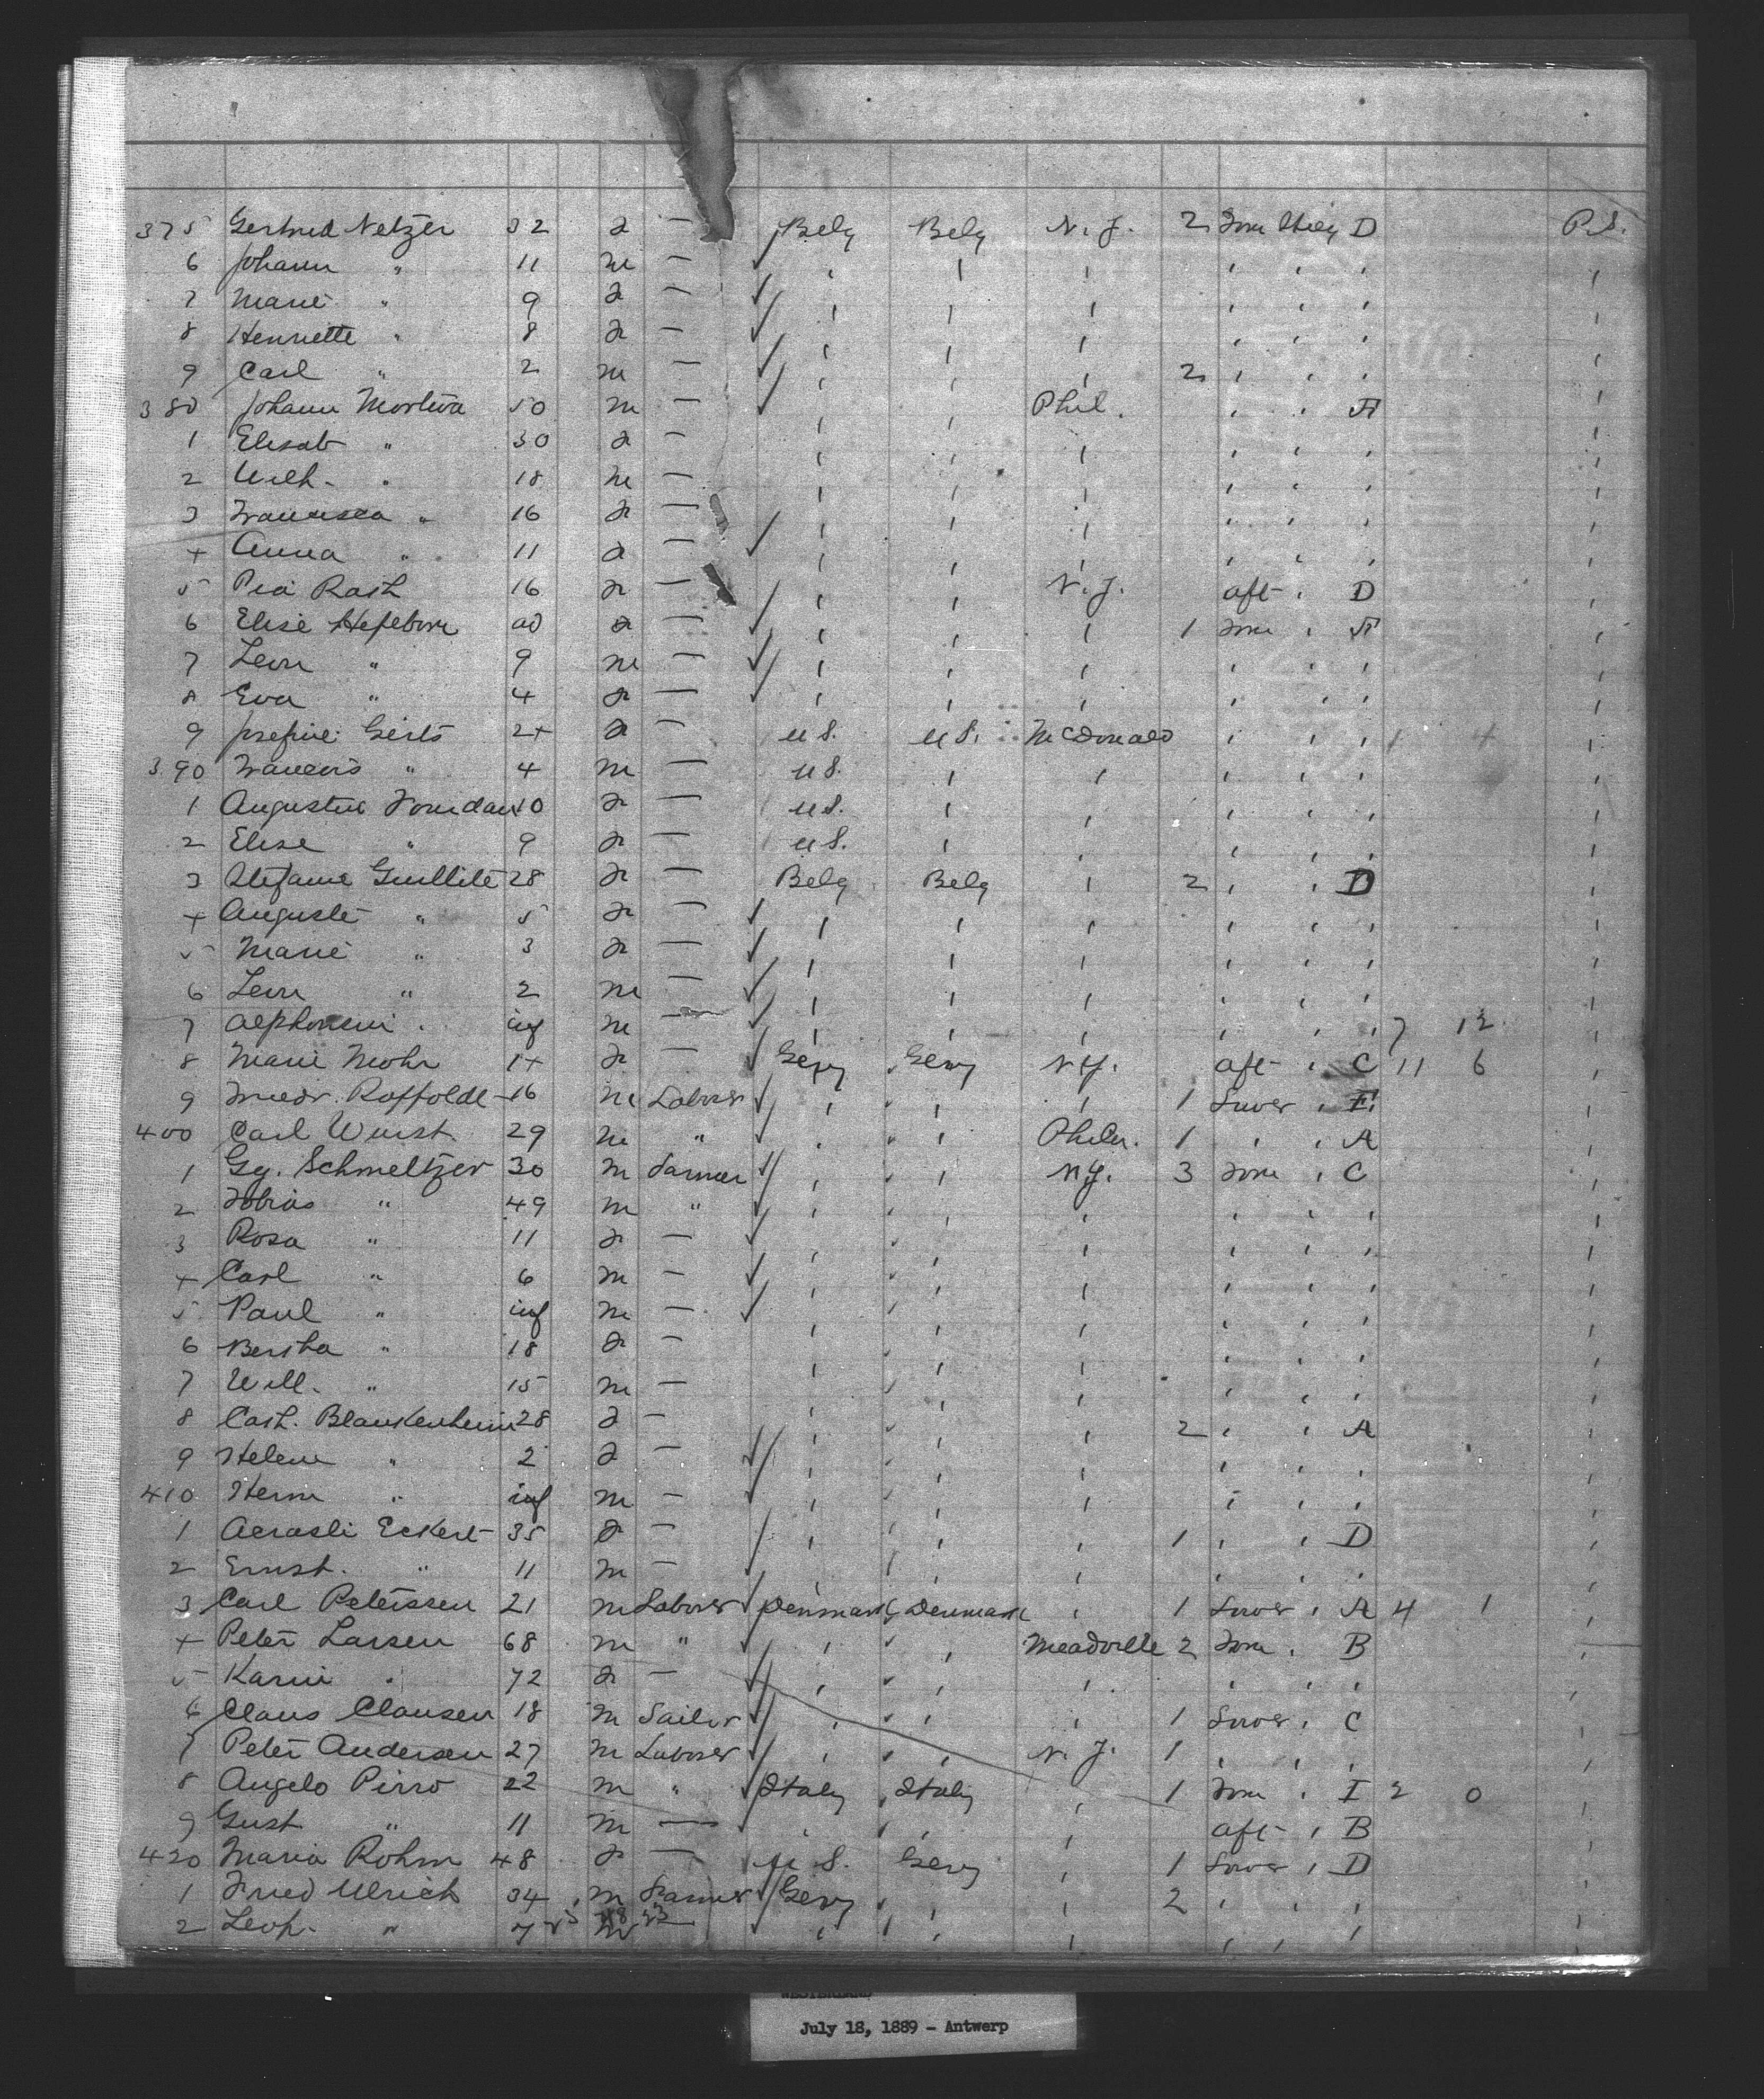 375 Gertrud Netzer 32 f — Belg Belg N.Y. 2 Fore Stieg D P.S.
6 Johann " 11 m — ✓ ' ' ' ' ' ' '
7 Marie " 9 f — ✓ ' ' ' ' ' ' '
8 Henriette " 8 f — ✓ ' ' ' ' ' ' '
9 Carl " 2 m — ✓ ' ' ' 2 ' ' ' '
380 Johann 50 m — ✓ ' ' Phil. ' ' A '
1 Elisab " 30 f — ' ' ' ' ' ' '
2 Wilh. " 18 m — ' ' ' ' ' ' '
3 Francisca " 16 f — ' ' ' ' ' ' '
4 Anna " 11 f — ✓ ' ' ' ' ' ' '
5 Pia Rash 16 f — ' ' N.Y. aft ' D '
6 Elise 20 f — ✓ ' ' ' 1 Fore ' A '
7 Leon " 9 m — ✓ ' ' ' ' ' ' '
8 Eva " 4 f — ✓ ' ' ' ' ' ' '
9 Josefine Gerts 24 f — U.S. U.S. McDonald ' ' ' 1 4 '
390 Francois " 4 m — U.S. ' ' ' ' ' '
1 Augustus 10 f — U.S. ' ' ' ' ' '
2 Elise " 9 f — U.S. ' ' ' ' ' '
3 Stefanie 28 f — Belg Belg ' 2 ' ' D '
4 Auguste " 5 f — ✓ ' ' ' ' ' ' '
5 Marie " 3 f — ✓ ' ' ' ' ' ' '
6 Leon " 2 m — ✓ ' ' ' ' ' ' '
7 Alphonsin " inf m — ✓ ' ' ' ' ' ' 7 12 '
8 Marie Mohr 14 f — ✓ Gery Gery N.Y. aft ' C 11 6 '
9 Friedr. Roffolde 16 m Laborer ✓ ' ' ' 1 Lower ' E '
400 Carl Wurst 29 m " ✓ ' ' Phila. 1 ' ' A '
1 Gg. Schmeltzer 30 m Farmer ✓ ' ' N.Y. 3 Fore ' C '
2 Tobias " 49 m " ✓ ' ' ' ' ' ' '
3 Rosa " 11 f — ✓ ' ' ' ' ' ' '
4 Carl " 6 m — ✓ ' ' ' ' ' ' '
5 Paul " inf m — ✓ ' ' ' ' ' ' '
6 Bertha " 18 f — ' ' ' ' ' ' '
7 Will. " 15 m — ' ' ' ' ' ' '
8 Cath. Blankenheim 28 f — ' ' ' 2 ' ' A '
9 Helene " 2 f — ✓ ' ' ' ' ' ' '
410 Herm " inf m — ✓ ' ' ' ' ' ' '
1 Eckert 35 f — ' ' ' 1 ' ' D '
2 Ernst. " 11 m — ✓ ' ' ' ' ' ' '
3 Carl Peterssen 21 m Laborer ✓ Denmark Denmark ' 1 Lower ' A 4 1 '
4 Peter Larsen 68 m " ✓ ' ' Meadville 2 Fore ' B '
5 Karin " 72 f — ✓ ' ' ' ' ' ' '
6 Claus Clausen 18 m Sailor ✓ ' ' ' 1 Lower ' C '
7 Peter Andersen 27 m Laborer ✓ ' ' N.Y. 1 ' ' ' '
8 Angelo Pirro 22 m " ✓ Italy Italy ' 1 Fore ' I 2 0 '
9 Gust " 11 m — ' ' ' aft ' B '
420 Maria Rohm 48 f — U.S. Gery ' 1 Lower ' D '
1 Fried Ulrich 34 m Farmer ✓ Gery ' ' 2 ' ' ' '
2 Leop. " 7 m ✓ ' ' ' ' ' ' '
WESTERNLAND
July 18, 1889 - Antwerp